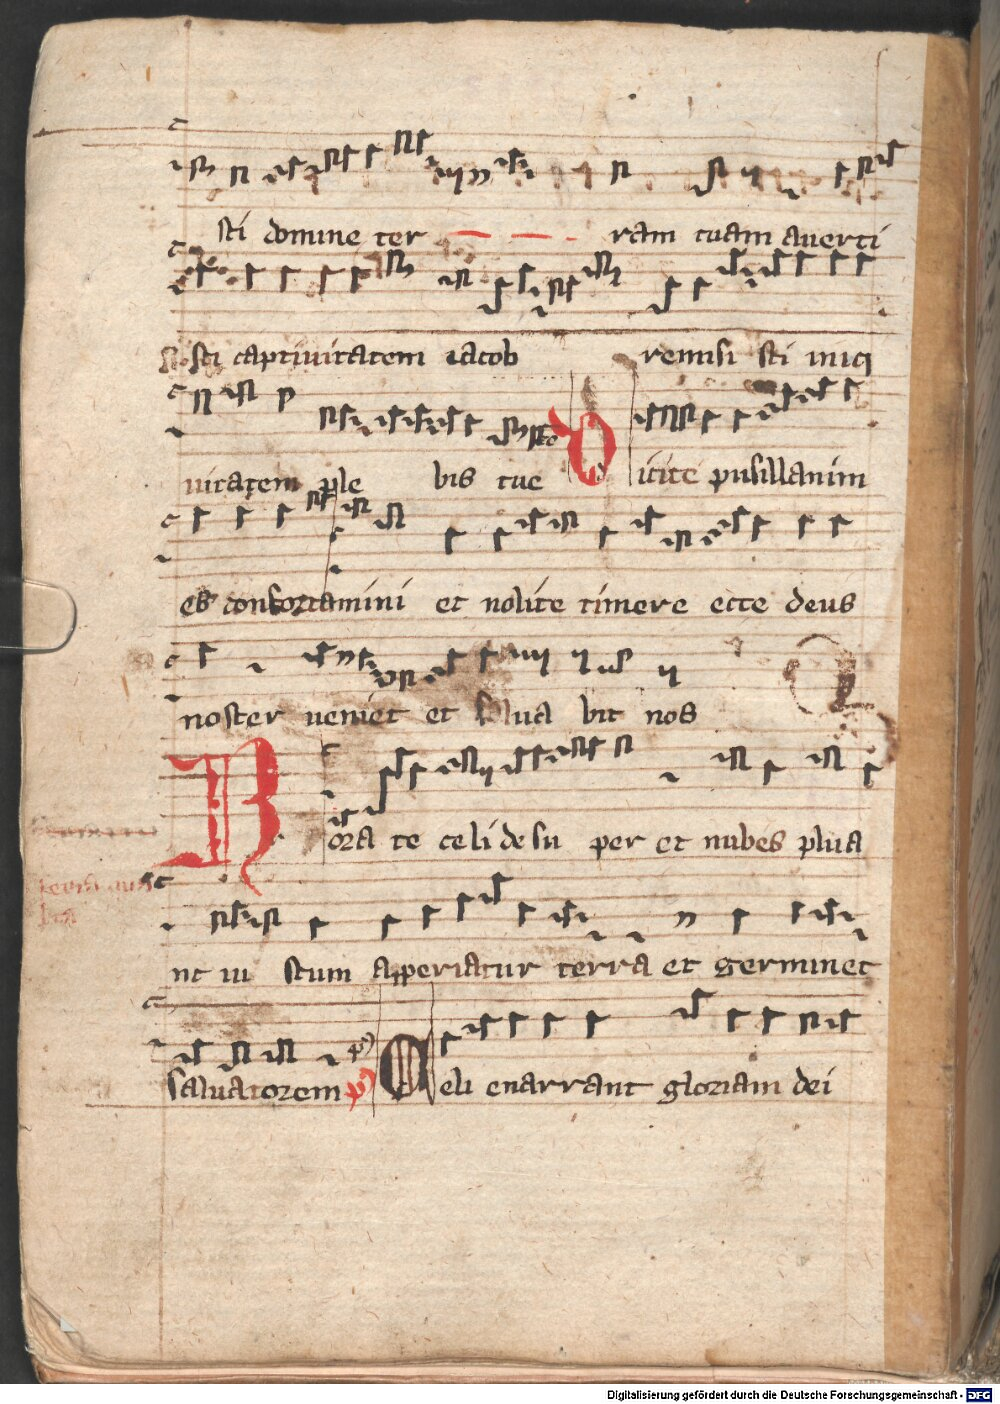 sti domine ter ram tuam auerti
sti captiuitatem iacob remisi sti iniq
uitatem ple bis tue Dicite pusillanim
es confortamini et nolite timere ecce deus
noster ueniet et salua bit nos
Rorate celi de su per et nubes plua
nt iu stum apperiatur terra et germinet
saluatorem Celi enarrant gloriam dei
Digitalisierung gefördert durch die Deutsche Forschungsgemeinschaft - DFG